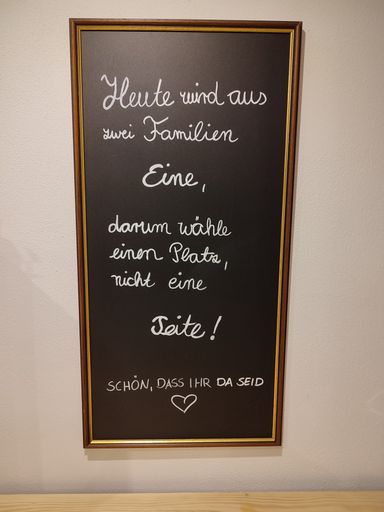 Heute wird aus
zwei Familien
Eine,
darum wähle
einen Platz,
nicht eine
Seite!
SCHÖN, DASS IHR DA SEID